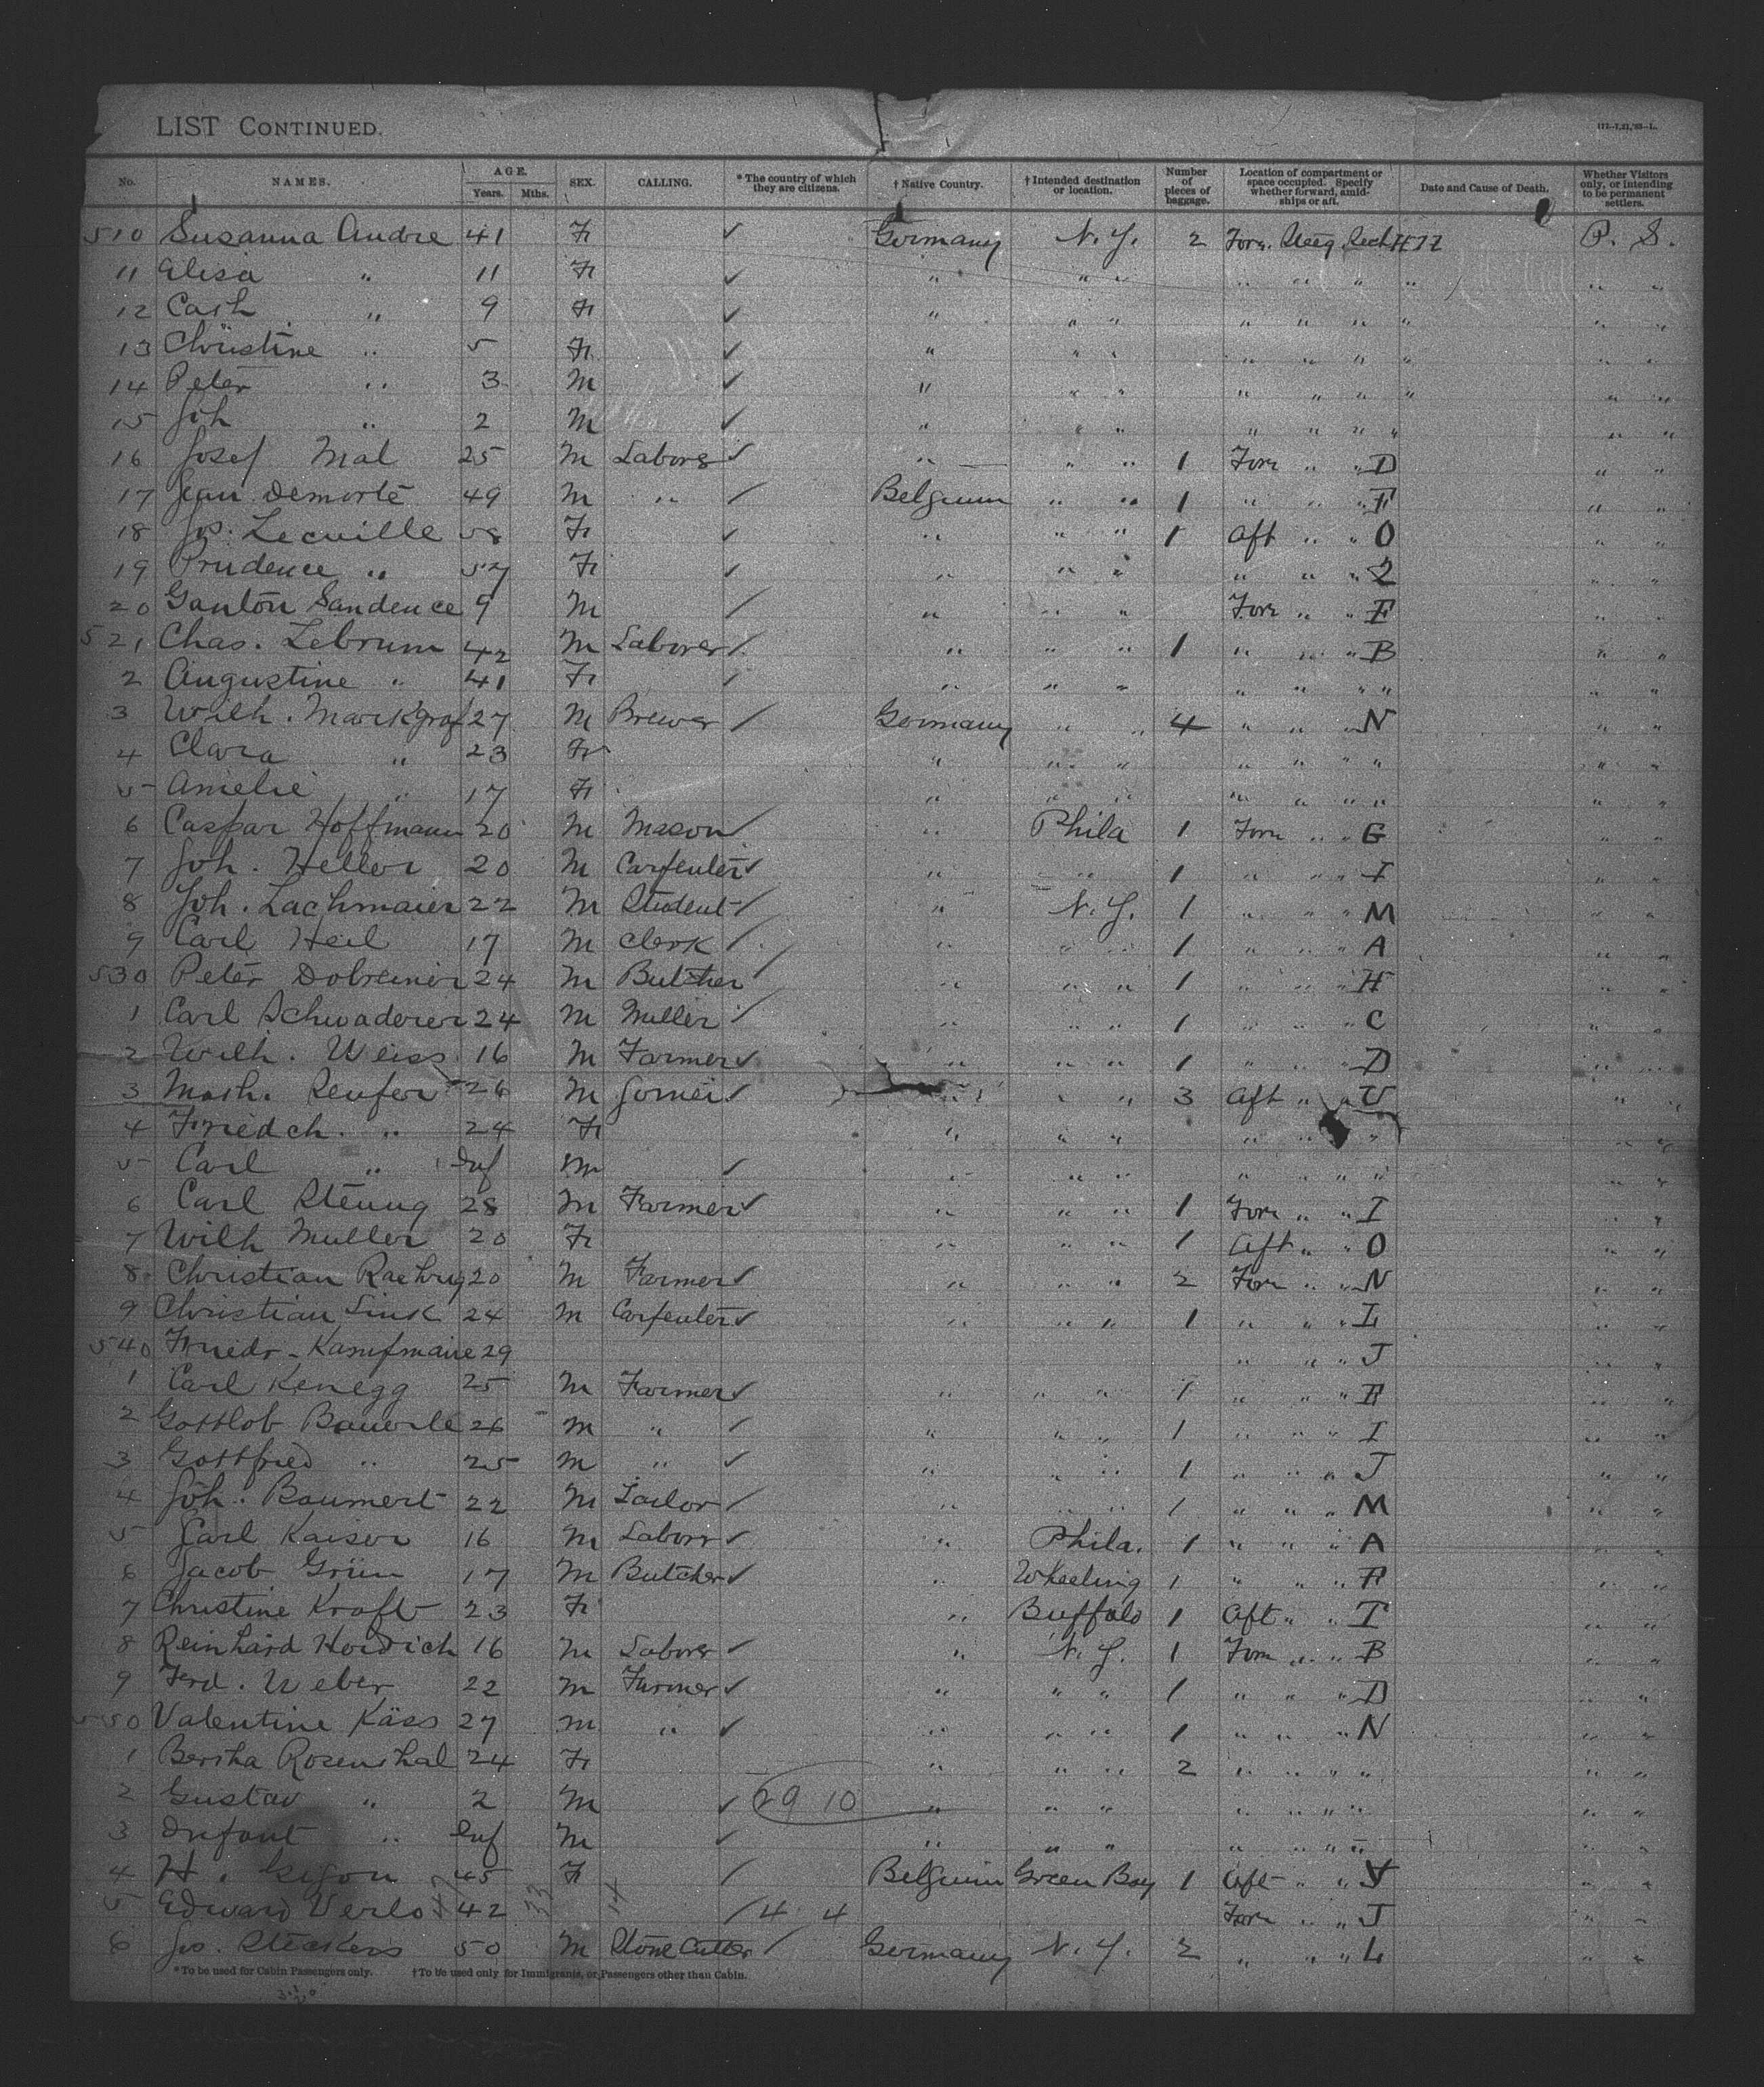 LIST CONTINUED.
No. NAMES. AGE. Years. Mths. SEX. CALLING. * The country of which they are citizens. † Native Country. † Intended destination or location. Number of pieces of baggage. Location of compartment or space occupied. Specify whether forward, amidships or aft. Date and Cause of Death. Whether Visitors only, or intending to be permanent settlers.
510 Susanna Andre 41 F ✓ Germany N. Y. 2 Forw. Steeg. Sect. P. S.
11 Elisa " 11 F ✓ " " " " " " " " "
12 Cath " 9 F ✓ " " " " " " " " "
13 Christine " 5 F ✓ " " " " " " " " "
14 Peter " 3 M ✓ " " " " " " " " "
15 Joh " 2 M ✓ " " " " " " " " "
16 Josef Mal 25 M Labors ✓ " " " 1 Forw " " D " "
17 Jean Demorté 49 M " ✓ Belgium " " 1 " " " F " "
18 Jos. Lecuille 58 F ✓ " " " 1 Aft " " O " "
19 Prudence " 57 F ✓ " " " " " " Z " "
20 Ganton Sandence 9 M ✓ " " " Forw " " F " "
521 Chas. Lebrum 42 M Laborer ✓ " " " 1 " " " B " "
2 Augustine " 41 F ✓ " " " " " " " " "
3 Wilh. Markgraf 27 M Brewer ✓ Germany " " 4 " " " N " "
4 Clara " 23 F " " " " " " " " "
5 Amelie " 17 F " " " " " " " " "
6 Caspar Hoffmann 20 M Mason ✓ " Phila 1 Forw " " G " "
7 Joh. Heller 20 M Carpenter ✓ " " 1 " " " I " "
8 Joh. Lachmaier 22 M Student ✓ " N. Y. 1 " " " M " "
9 Carl Heil 17 M Clerk ✓ " " " 1 " " " A " "
530 Peter Dobreiner 24 M Butcher ✓ " " " 1 " " " H " "
1 Carl Schwaderer 24 M Miller ✓ " " " 1 " " " C " "
2 Wilh. Weiss 16 M Farmer ✓ " " " 1 " " " D " "
3 Math. Renfer 26 M ✓ " " " 3 Aft " " U " "
4 Friedch. " 24 F " " " " " " " "
5 Carl " Inf M ✓ " " " " " " " " "
6 Carl 28 M Farmer ✓ " " " 1 Forw " " I " "
7 Wilh Muller 20 F " " " 1 Aft " " O " "
8 Christian 20 M Farmer ✓ " " " 2 Forw " " N " "
9 Christian Link 24 M Carpenter ✓ " " " 1 " " " L " "
540 Friedr - 29 " " " J " "
1 Carl Kenegg 25 M Farmer ✓ " " " 1 " " " F " "
2 Gottlob Bauerle 26 M " ✓ " " " 1 " " " I " "
3 Gottfried " 25 M " ✓ " " " 1 " " " J " "
4 Joh. Baumert 22 M Tailor ✓ " " " 1 " " " M " "
5 Carl Kaiser 16 M Laborr ✓ " Phila. 1 " " " A " "
6 Jacob Grün 17 M Butcher ✓ " Wheeling 1 " " " F " "
7 Christine Kraft 23 F " Buffalo 1 Aft " " T " "
8 Reinhard Hordich 16 M Labors ✓ " N. Y. 1 Forw " " B " "
9 Frd. Weber 22 M Farmer ✓ " " " 1 " " " D " "
550 Valentine Käss 27 M " ✓ " " " 1 " " " N " "
1 Bertha Rosenthal 24 F " " " 2 " " " " " "
2 Gustav " 2 M ✓ 29 10 " " " " " " " " "
3 Infant " Inf M ✓ " " " " " " " " "
4 H. 45 F ✓ Belgium Green Bay 1 Aft " " " "
5 Edward 42 ✓ 4 4 Forw " " J " "
6 Jos. Steakers 50 M Stone Cutter ✓ Germany N. Y. 2 " " " L " "
* To be used for Cabin Passengers only. † To be used only for Immigrants, or Passengers other than Cabin.